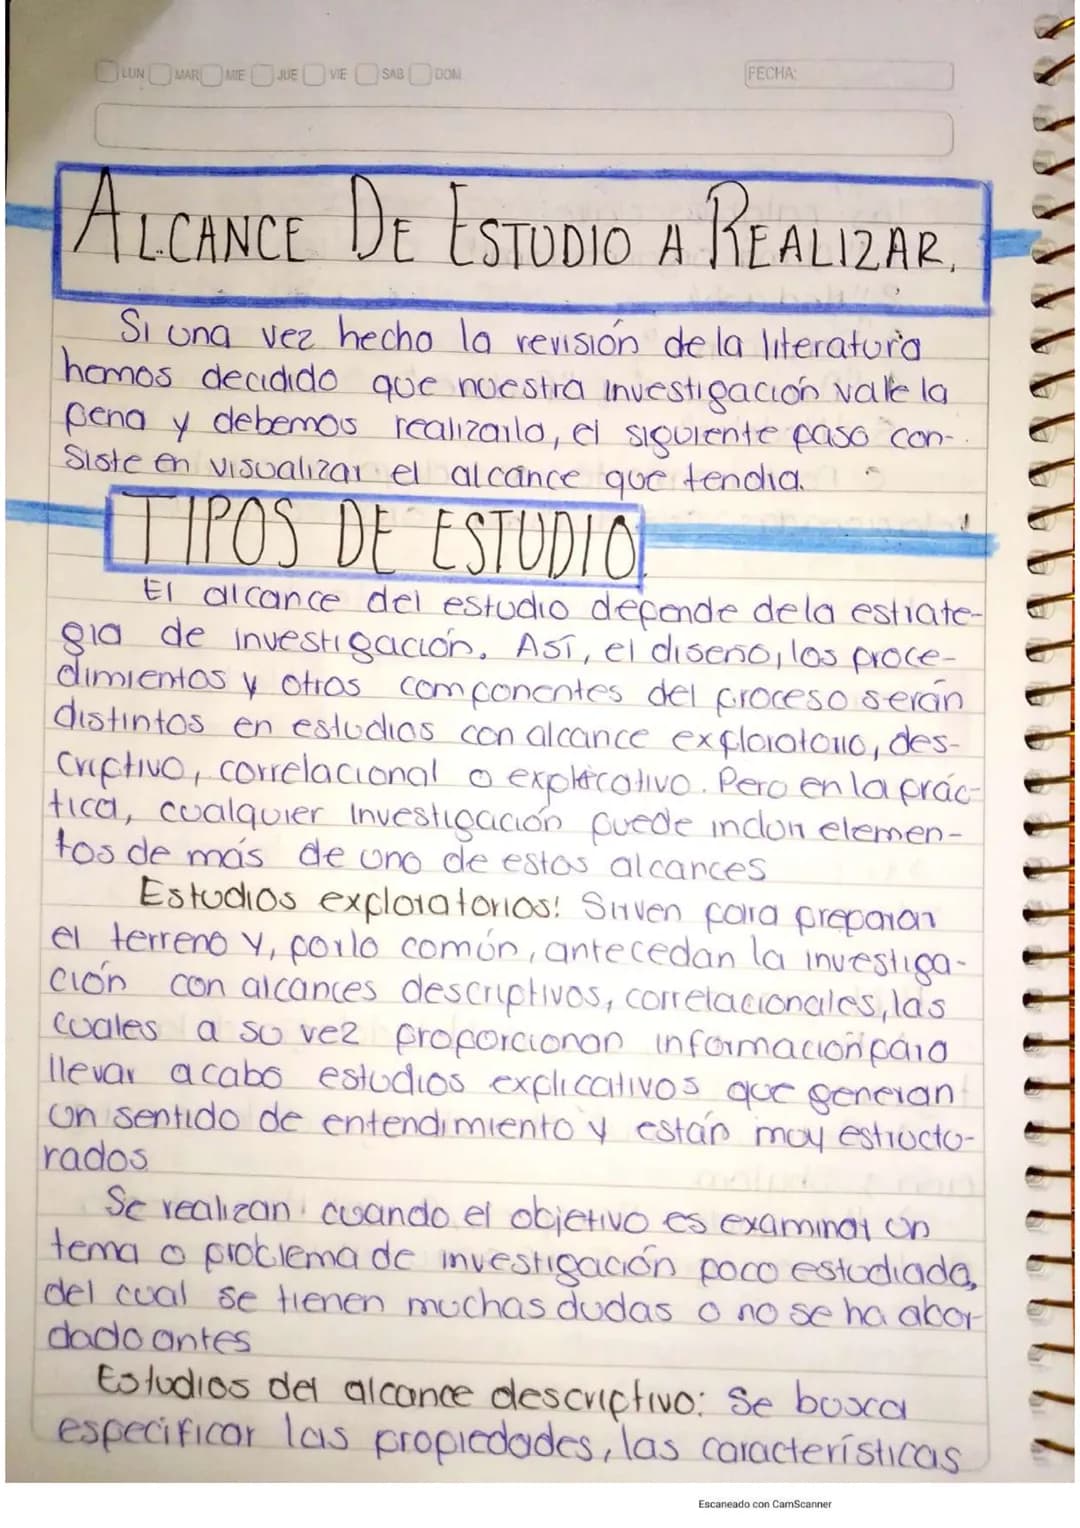 LUN MAR MIE JUE VIE SAB DOM
FECHA:
ALCANCE DE ESTUDIO A REALIZAR.
Si una vez hecho la revisión de la literatura
hemos decidido que nuestra investigación valle la
pena y debemos realizarlo, el siguiente paso con-
siste en visualizar el alcance que tendra.
TIPOS DE ESTUDIO.
El alcance del estudio depende de la estrate-
gia de investigación. Así, el diseño, los proce-
dimientos y otros componentes del proceso serán
distintos en estudios con alcance exploratorio, des-
criptivo, correlacional o explicativo. Pero en la prác-
tica, cualquier investigación puede incluir elemen-
tos de más de uno de estos alcances
Estudios exploratorios: Sirven para preparar
el terreno y, por lo común, antecedan la investiga-
ción con alcances descriptivos, correlacionales, las
cuales a su vez proporcionan información para
llevar acabo estudios explicativos que generan
un sentido de entendimiento y están muy estructu-
rados
Se realizan cuando el objetivo es examinar un
tema o problema de investigación poco estudiada,
del cual se tienen muchas dudas o no se ha abor-
dado antes
Estudios del alcance descriptivo: Se busca
especificar las propiedades, las características
Escaneado con CamScanner